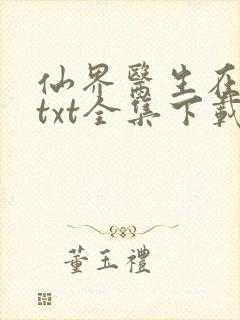 仙界醫生在
txt全集下載
董玉禮